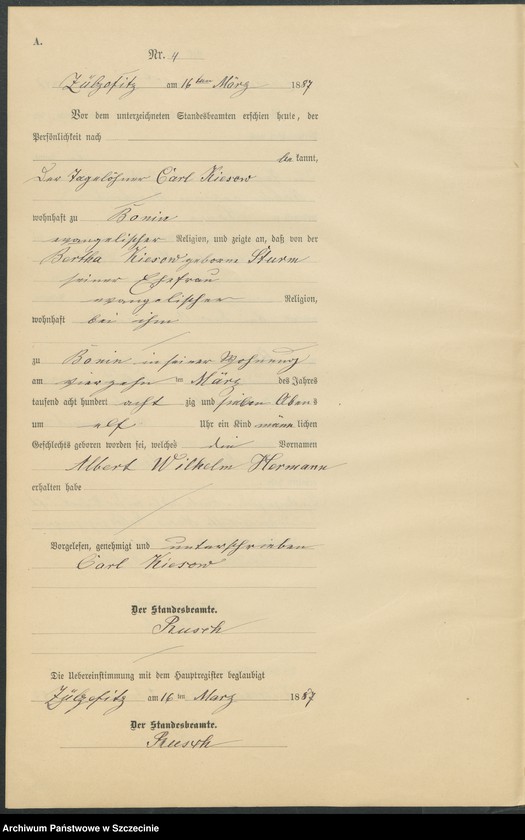 A.
Nr. 4
Zülzefitz am 16ten März 1887
Vor dem unterzeichneten Standesbeamten erschien heute, der
Persönlichkeit nach
be kannt,
Der Tagelöhner Carl Kiesow
wohnhaft zu Bonin
evangelischer Religion, und zeigte an, daß von der
Bertha Kiesow geborene Sturm
seiner Ehefrau
evangelischer Religion,
wohnhaft bei ihm
zu Bonin in seiner Wohnung
am vierzehn ten März des Jahres
tausend acht hundert acht zig und sieben Abends
um elf Uhr ein Kind männ lichen
Geschlechts geboren worden sei, welches die Vornamen
Albert Wilhelm Hermann
erhalten habe
Vorgelesen, genehmigt und unterschrieben
Carl Kiesow
Der Standesbeamte.
Rusch
Die Uebereinstimmung mit dem Hauptregister beglaubigt
Zülzefitz am 16 ten März 1887
Der Standesbeamte.
Rusch
Archiwum Państwowe w Szczecinie